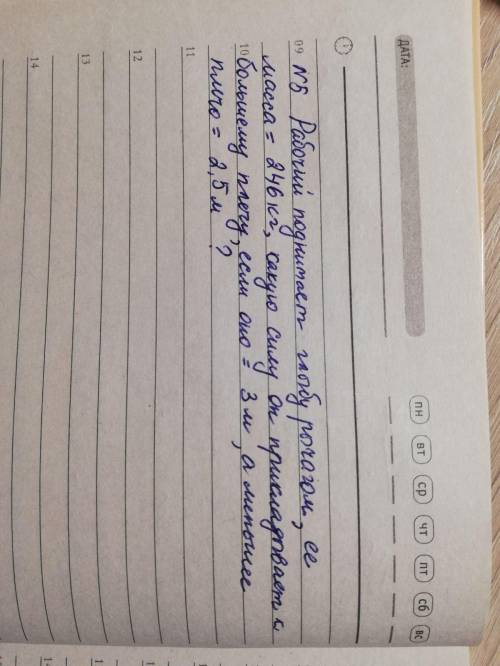 ДАТА:
пн вт ср чт пт сб вс
09 №5 Рабочий поднимает глыбу рычагом, ее
масса = 246 кг, какую силу он прикладывает к
10 большему плечу, если оно = 3 м, а меньшее
плечо = 2,5 м ?
11
12
13
14